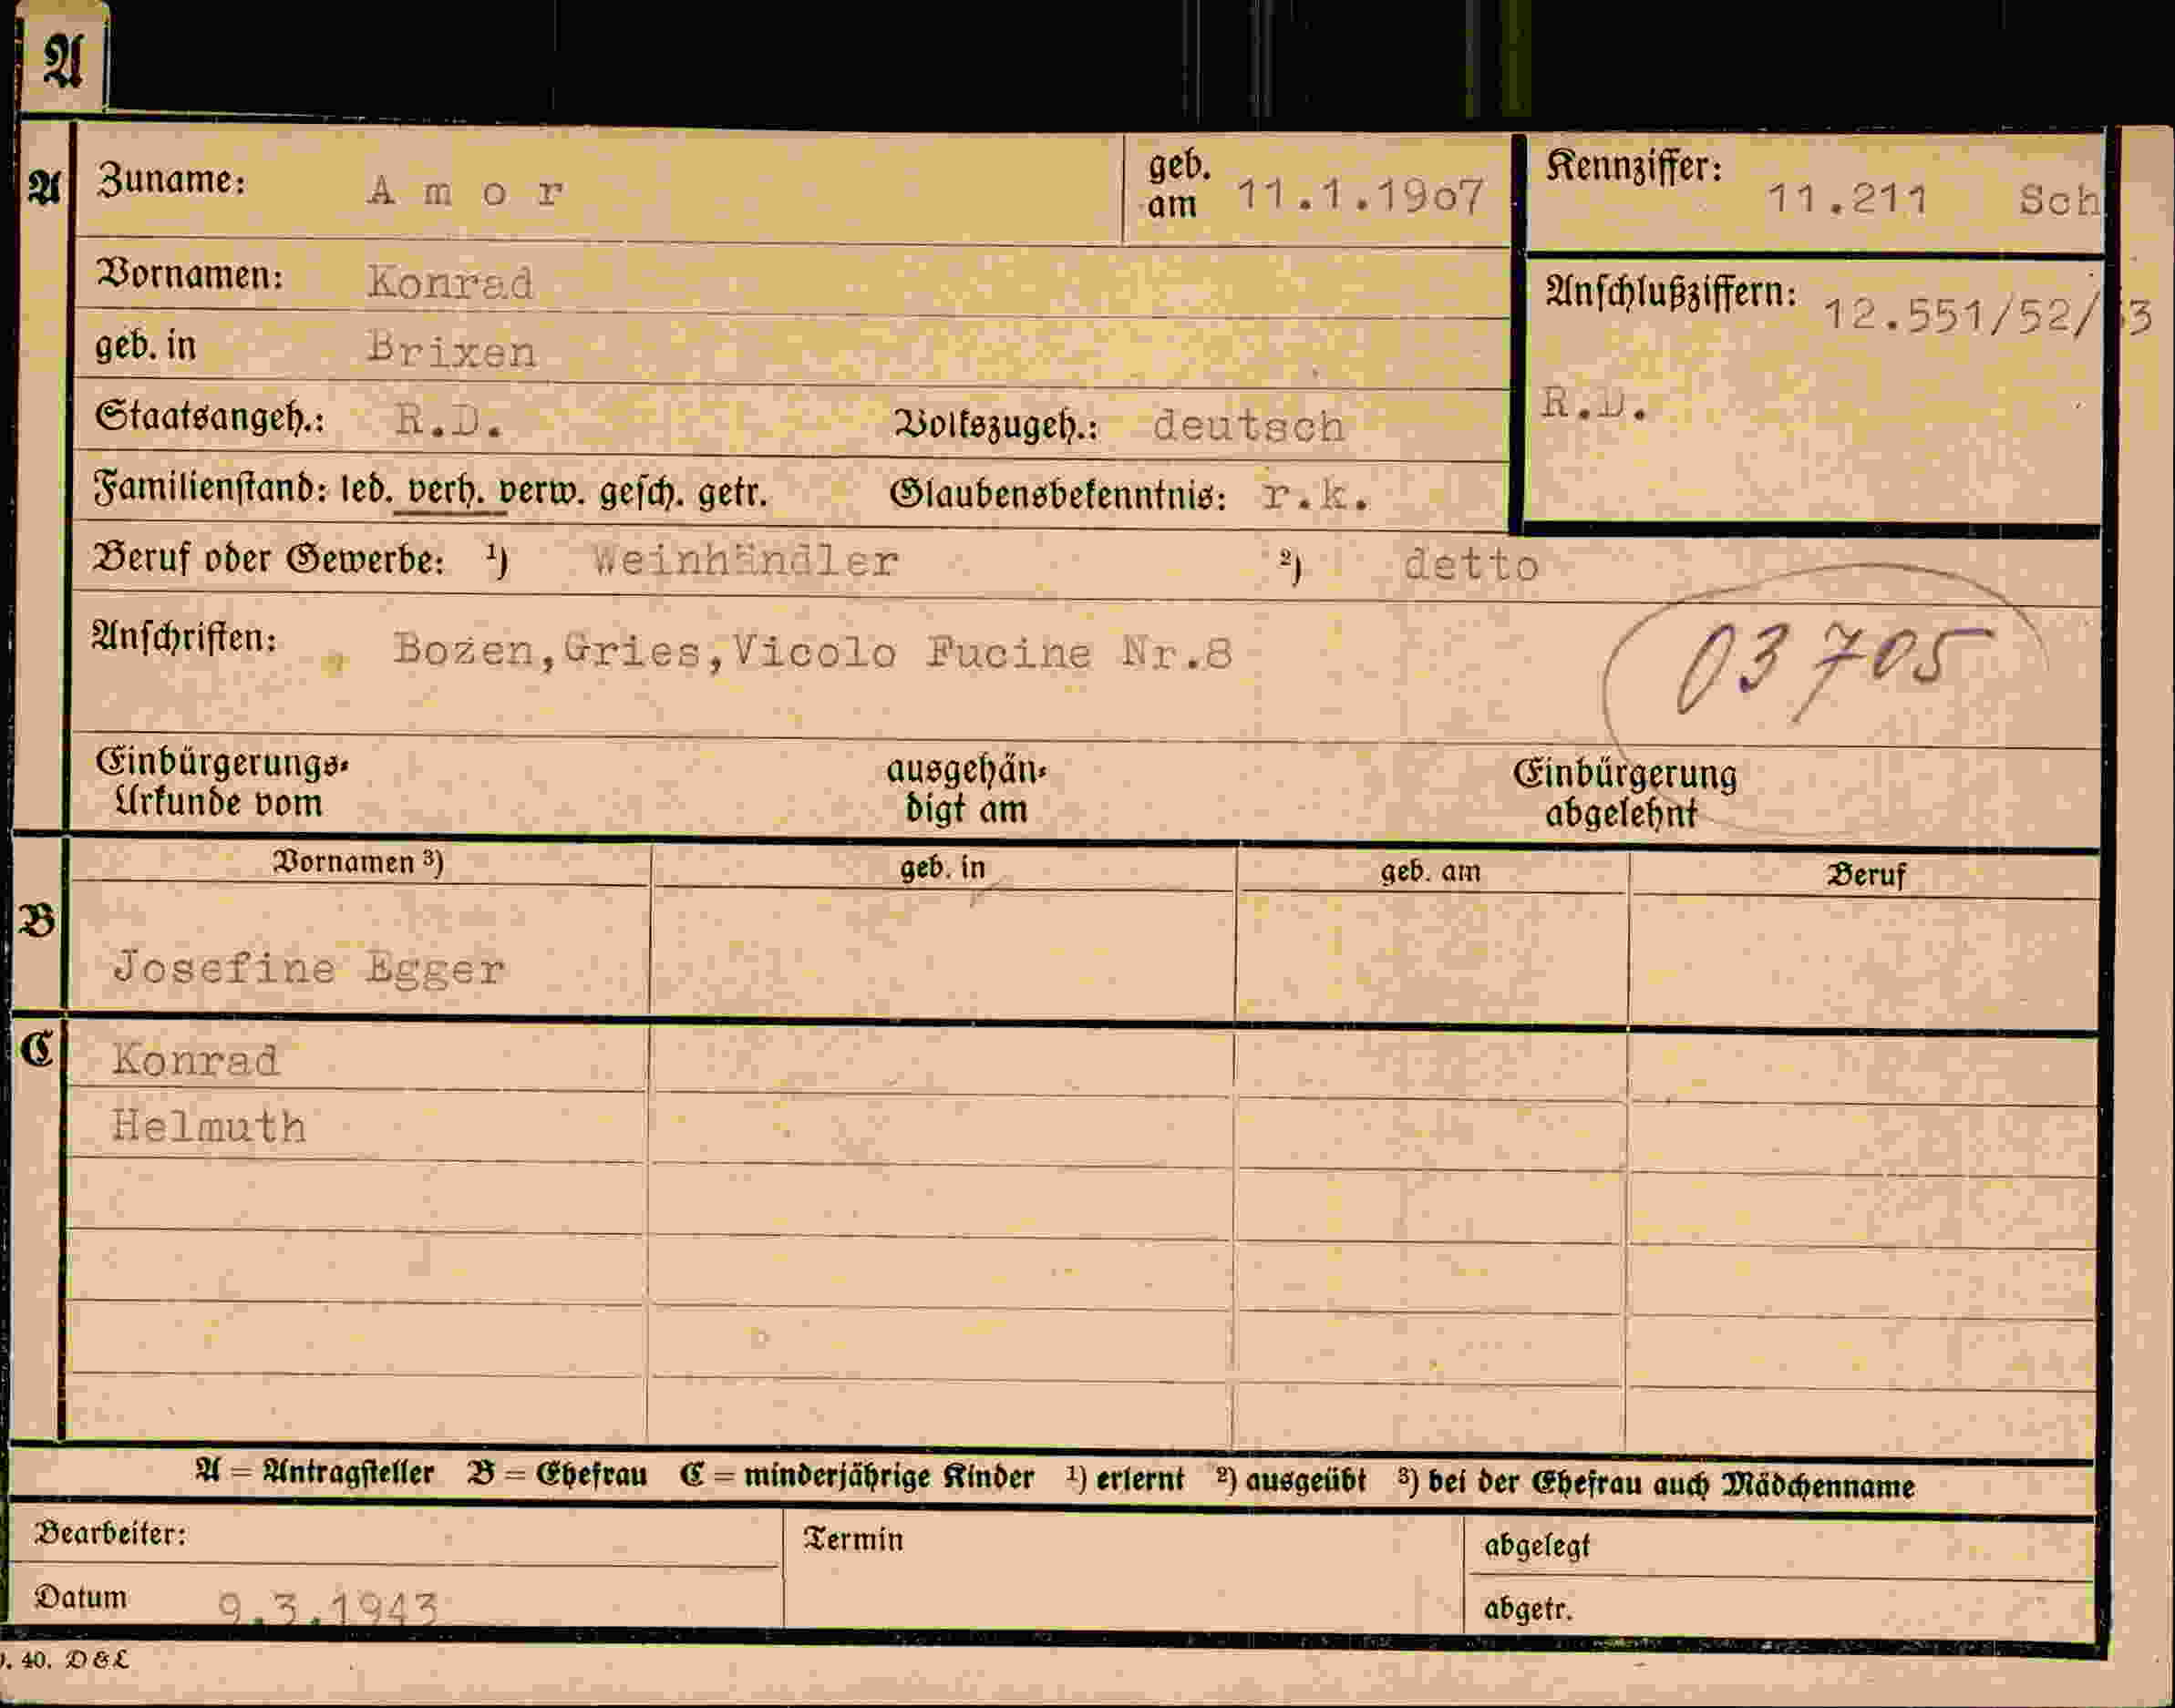 A
A Zuname: A m o r geb. am 11.1.19o7 Kennziffer: 11.211 Sch
Vornamen: Konrad Anschlußziffern: 12.551/52/53
geb. in Brixen
Staatsangeh.: R.D. Volkszugeh.: deutsch R.D.
Familienstand: led. verh. verw. gesch. getr. Glaubensbekenntnis: r.k.
Beruf oder Gewerbe: ¹) Weinhändler ²) detto
Anschriften: Bozen,Gries,Vicolo Fucine Nr.8 03705
Einbürgerungs- ausgehän- Einbürgerung
Urkunde vom digt am abgelehnt
Vornamen ³) geb. in geb. am Beruf
B
Josefine Egger
C Konrad
Helmuth
A = Antragsteller B = Ehefrau C = minderjährige Kinder ¹) erlernt ²) ausgeübt ³) bei der Ehefrau auch Mädchenname
Bearbeiter: Termin abgelegt
Datum 9.3.1943 abgetr.
. 40. D & L